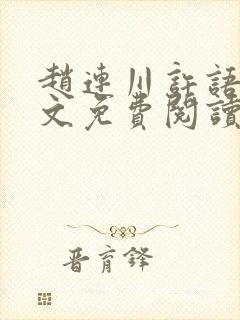 趙連川許語
文免費閱讀
晋育鋒